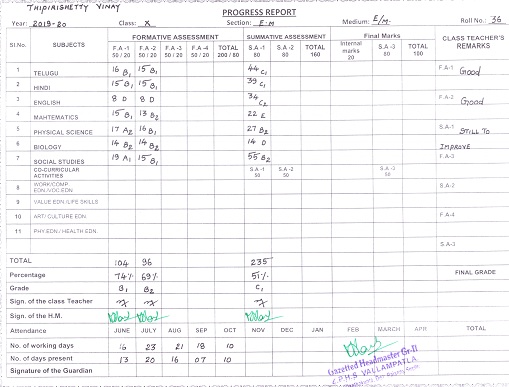 THIPIRISHETTY VINAY
PROGRESS REPORT
Year: 2019-20 Class: X Section: E.M Medium: E/M Roll No.: 36
Sl.No. SUBJECTS FORMATIVE ASSESSMENT SUMMATIVE ASSESSMENT Final Marks CLASS TEACHER'S REMARKS
F.A -1 50 / 20 F.A -2 50 / 20 F.A -3 50 / 20 F.A -4 50 / 20 TOTAL 200 / 80 S.A -1 80 S.A -2 80 TOTAL 160 Internal marks 20 S.A -3 80 TOTAL 100
1 TELUGU 16 B1 15 B1 44 C1 F.A-1 Good
2 HINDI 15 B1 15 B1 39 C1
3 ENGLISH 8 D 8 D 34 C2 F.A-2 Good
4 MAHTEMATICS 15 B1 13 B2 22 E
5 PHYSICAL SCIENCE 17 A2 16 B1 27 B2 S.A-1 STILL TO
6 BIOLOGY 14 B2 14 B2 14 D IMPROVE
7 SOCIAL STUDIES 19 A1 15 B1 55 B2 F.A-3
CO-CURRICULAR ACTIVITIES S.A -1 50 S.A -2 50 S.A -3 50
8 WORK/COMP. EDN./VOC EDN. S.A-2
9 VALUE EDN./LIFE SKILLS
10 ART/ CULTURE EDN. F.A-4
11 PHY.EDN./ HEALTH EDN.
S.A-3
TOTAL 104 96 235
Percentage 74% 69% 51% FINAL GRADE
Grade B1 B2 C1
Sign. of the class Teacher
Sign. of the H.M.
Attendance JUNE JULY AUG SEP OCT NOV DEC JAN FEB MARCH APR TOTAL
No. of working days 16 23 21 18 10
No. of days present 13 20 16 07 10
Signature of the Guardian
Gazetted Headmaster Gr-II
Z.P.H.S. VALLAMPATLA